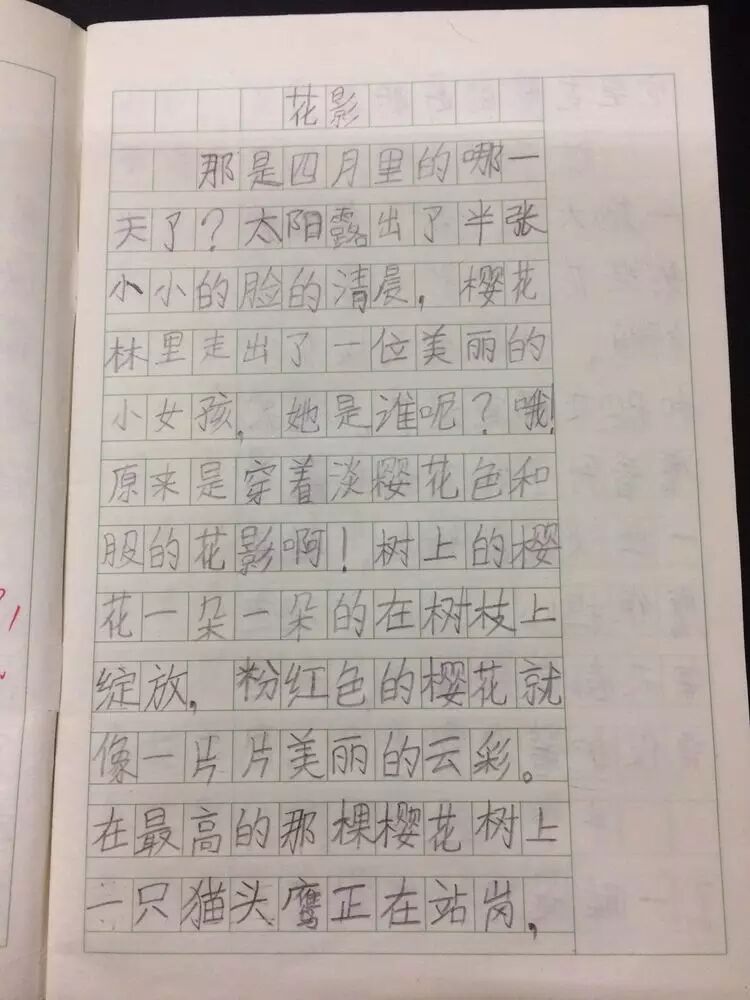 花影
那是四月里的哪一
天了？太阳露出了半张
小小的脸的清晨，樱花
林里走出了一位美丽的
小女孩，她是谁呢？哦！
原来是穿着淡樱花色和
服的花影啊！树上的樱
花一朵一朵的在树枝上
绽放，粉红色的樱花就
像一片片美丽的云彩。
在最高的那棵樱花树上
一只猫头鹰正在站岗，